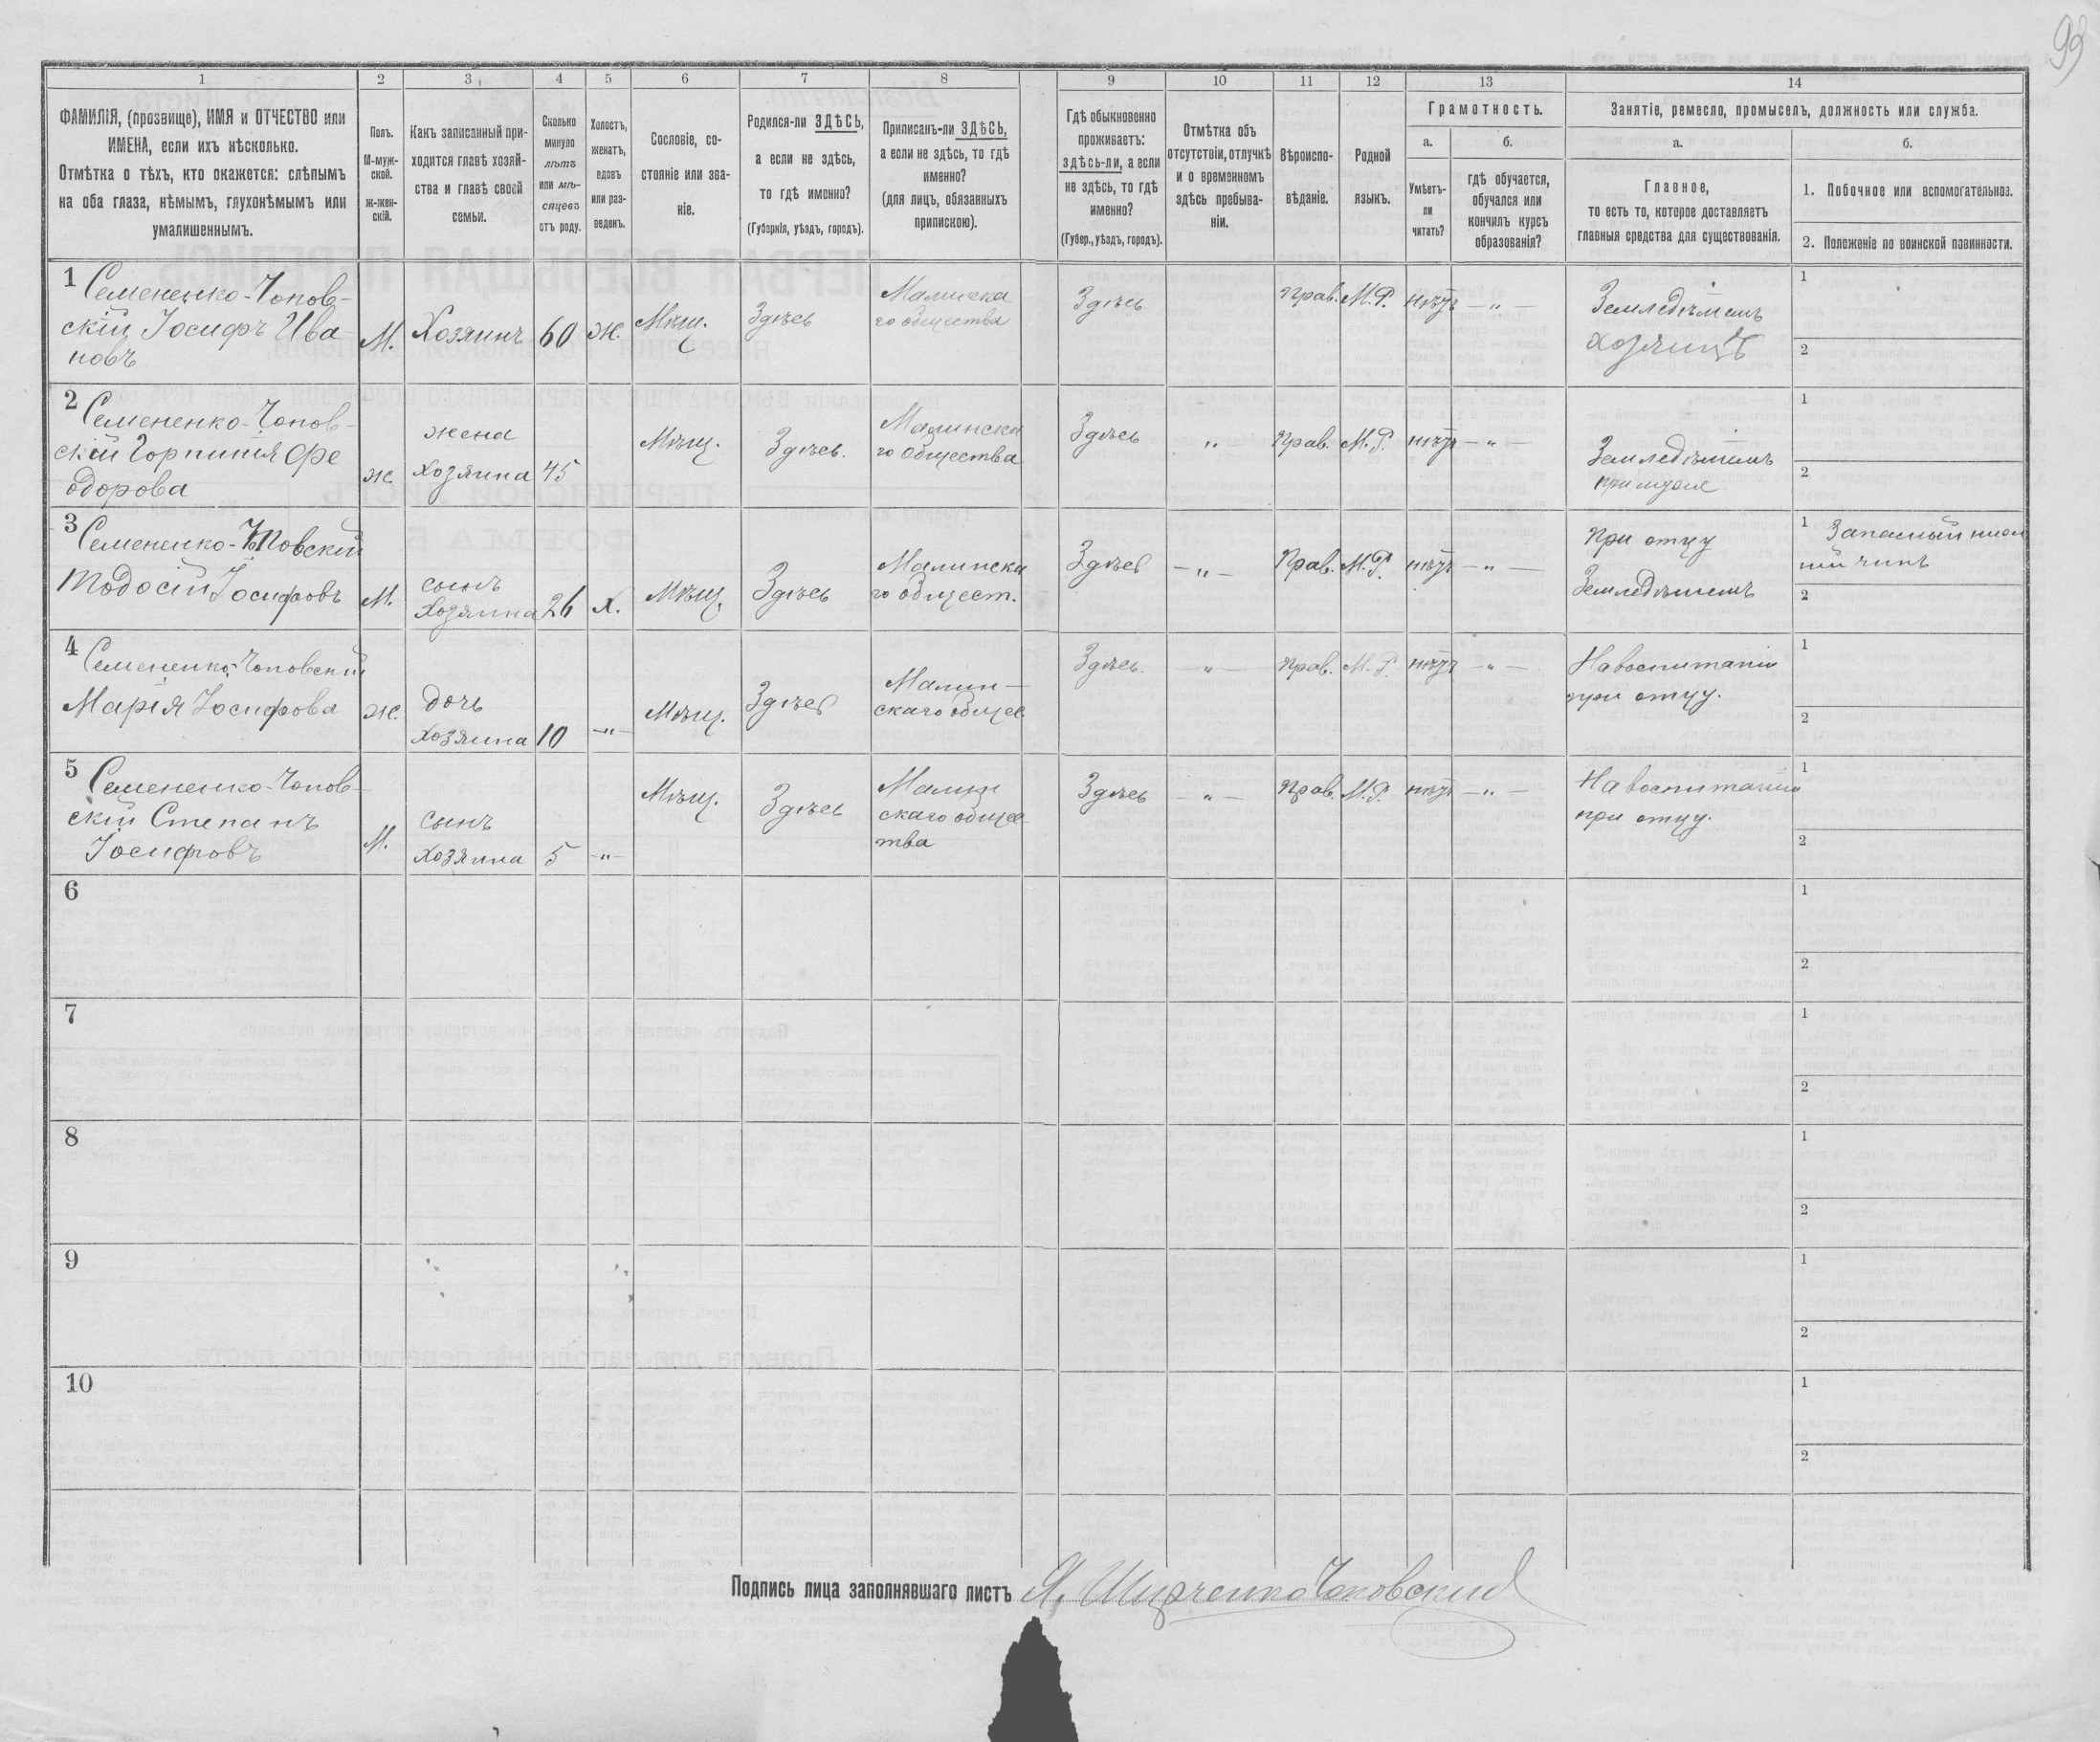 99
1 2 3 4 5 6 7 8 9 10 11 12 13 14
ФАМИЛІЯ, (прозвище), ИМЯ и ОТЧЕСТВО или
ИМЕНА, если ихъ нѣсколько.
Отмѣтка о тѣхъ, кто окажется: слѣпымъ
на оба глаза, нѣмымъ, глухонѣмымъ или
умалишеннымъ.
Полъ.
М-муж-
ской.
ж-жен-
скій.
Какъ записанный при-
ходится главѣ хозяй-
ства и главѣ своей
семьи.
Сколько
минуло
лѣтъ
или мѣ-
сяцевъ
отъ роду.
Холостъ,
женатъ,
вдовъ
или раз-
веденъ.
Сословіе, со-
стояніе или зва-
ніе.
Родился-ли ЗДѢСЬ,
а если не здѣсь,
то гдѣ именно?
(Губернія, уѣздъ, городъ).
Приписанъ-ли ЗДѢСЬ,
а если не здѣсь, то гдѣ
именно?
(для лицъ, обязанныхъ
припискою).
Гдѣ обыкновенно
проживаетъ:
здѣсь-ли, а если
не здѣсь, то гдѣ
именно?
(Губер., уѣздъ, городъ).
Отмѣтка объ
отсутствіи, отлучкѣ
и о временномъ
здѣсь пребыва-
ніи.
Вѣроиспо-
вѣданіе.
Родной
языкъ.
Грамотность.
а.
Умѣетъ-
ли
читать?
б.
гдѣ обучается,
обучался или
кончилъ курсъ
образованія?
Занятіе, ремесло, промыселъ, должность или служба.
а.
Главное,
то есть то, которое доставляетъ
главныя средства для существованія.
б.
1. Побочное или вспомогательное.
2. Положеніе по воинской повинности.
1 Семененко-Чопов-
скій Іосифъ Ива-
новъ
М. Хозяинъ 60 Ж. Мѣщ. Здѣсь
Малинска
го общества
Здѣсь Прав. М.Р. нѣтъ — „ —
Земледѣлецъ
хозяинъ
1
2
2 Семененко-Чопов-
скій Горпинія Фе
одорова
ж
жена
хозяина 45 Мѣщ. Здѣсь.
Малинска
го общества
Здѣсь „ Прав. М.Р. нѣтъ — „ —
при мужѣ
1
2
3 Семененко-Чоповскій
Тодосій Іосифовъ М.
сынъ
хозяина 26 Х. Мѣщ. Здѣсь
Малинска
го общест.
Здѣсь — „ — Прав. М.Р. нѣтъ — „ —
При отцу
1 Запасный
чинъ
2
4 Семененко-Чоповскій
Марія Іосифова ж.
дочь
хозяина 10 — „ — Мѣщ. Здѣсь
Малин-
скаго общес
Здѣсь. — „ — Прав. М.Р. нѣтъ — „ —
На воспитаніи
при отцу.
1
2
5 Семененко-Чопов-
скій Степанъ
Іосифовъ
М.
сынъ
хозяина 5 — „ — Мѣщ. Здѣсь
Малин
скаго общес
тва
Здѣсь — „ — Прав. М.Р. нѣтъ — „ —
На воспитаніи
при отцу.
1
2
6
1
2
7
1
2
8
1
2
9
1
2
10
1
2
Подпись лица заполнявшаго листъ А. Чоповский